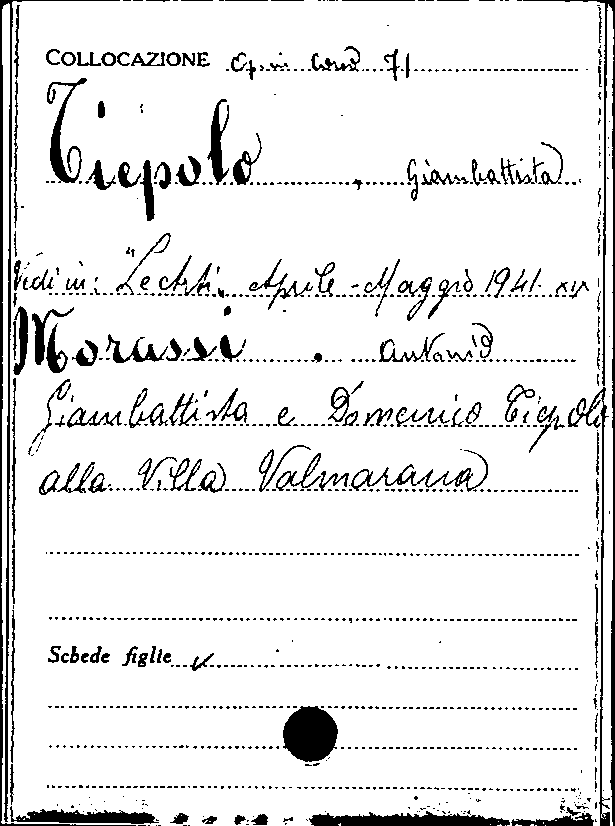 COLLOCAZIONE Op. in corso 71
Tiepolo, Giambattista
Vedi in: "Le Arti", Aprile-Maggio 1941. XIX
Morassi. Antonio
Giambattista e Domenico Tiepolo
alla Villa Valmarana
Schede figlie